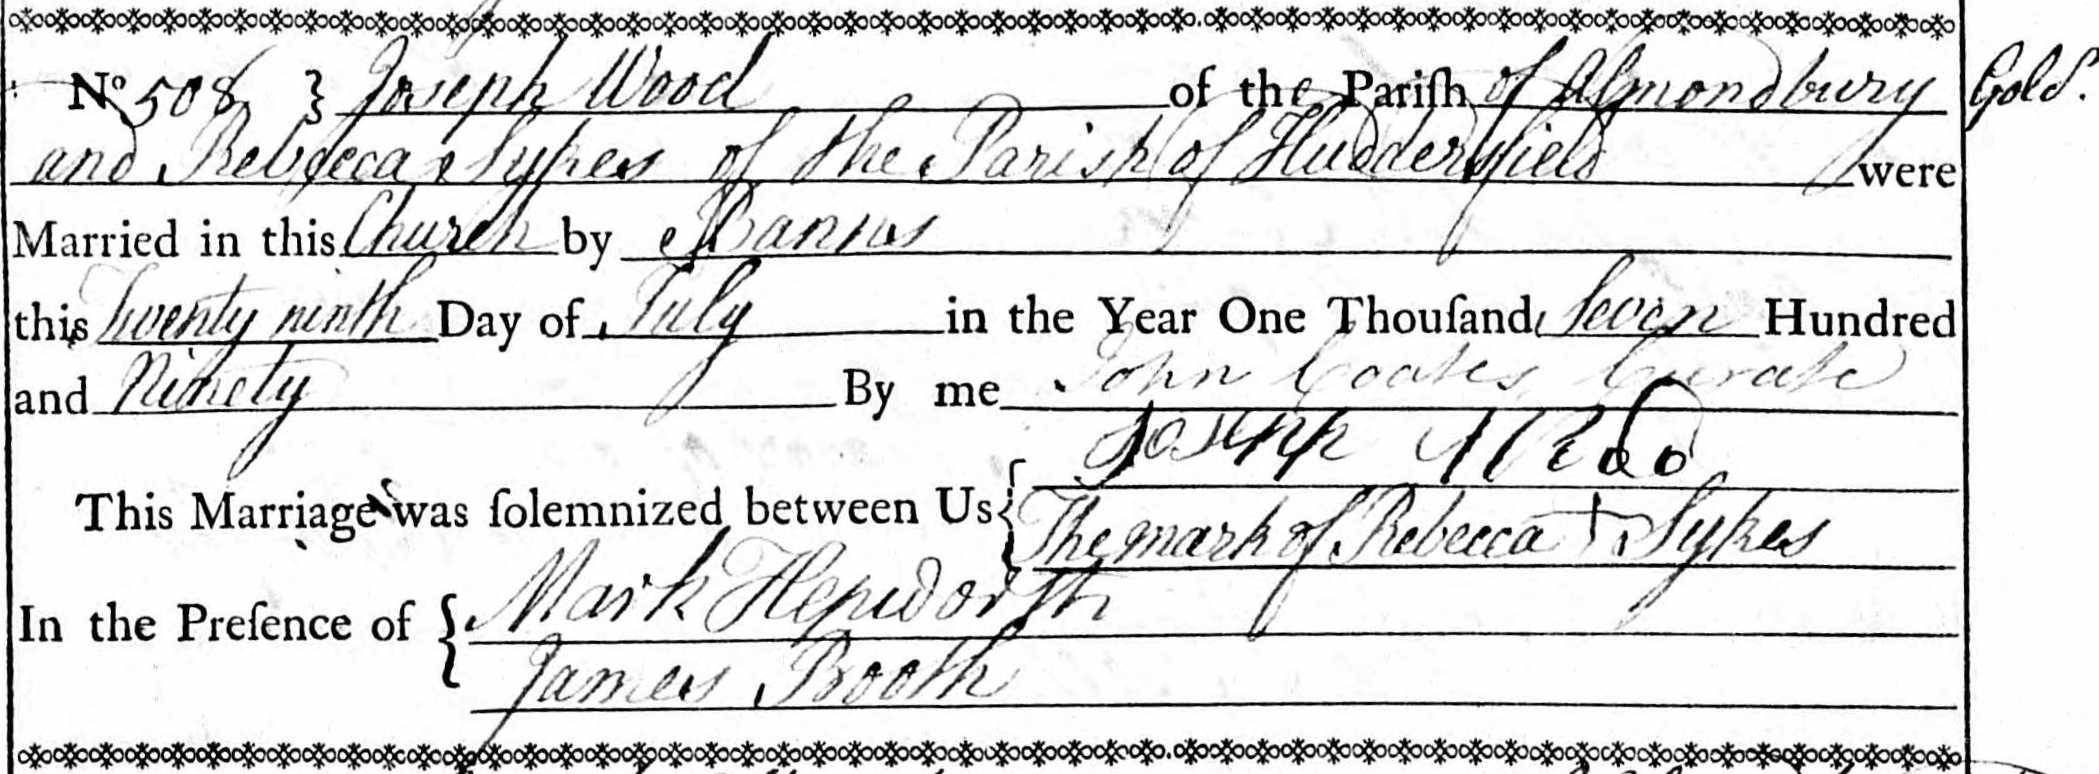 No 508 } Joseph Wood of the Pariſh of Almondbury Gold.
and Rebecca Sykes of the Parish of Huddersfield were
Married in this Church by Banns
this Twenty ninth Day of July in the Year One Thouſand Seven Hundred
and Ninety By me John Coates Curate
Joseph Wood
This Marriage was ſolemnized between Us { The mark of Rebecca + Sykes
In the Preſence of { Mark Hepworth
James Booth